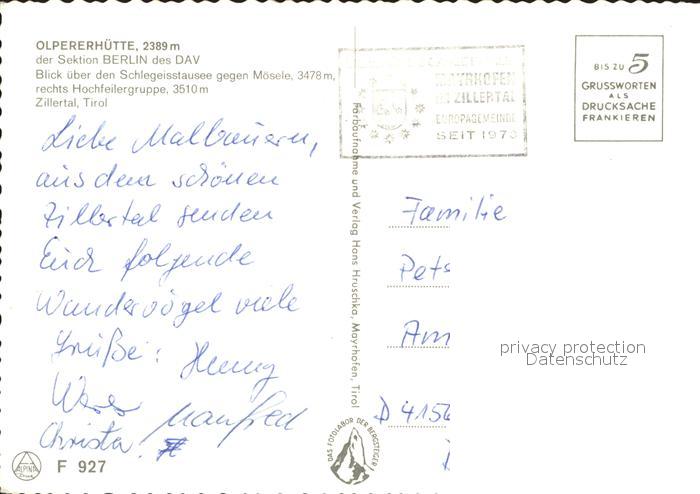 OLPERERHÜTTE, 2389 m
der Sektion BERLIN des DAV
Blick über den Schlegeisstausee gegen Mösele, 3478 m,
rechts Hochfeilergruppe, 3510 m
Zillertal, Tirol
MAYRHOFEN
IM ZILLERTAL
EUROPAGEMEINDE
SEIT 1973
BIS ZU 5
GRUSSWORTEN
ALS
DRUCKSACHE
FRANKIEREN
Liebe Malbauern,
aus dem schönen
Zillertal senden
Euch folgende
Wandervögel viele
Grüße: Henny
Manfred
Christa
Farbaufnahme und Verlag Hans Hruschka, Mayrhofen, Tirol
Familie
Pets
Am
D 4156
privacy protection
Datenschutz
DAS FOTOLABOR DER BERGSTEIGER
ALPINA
F 927